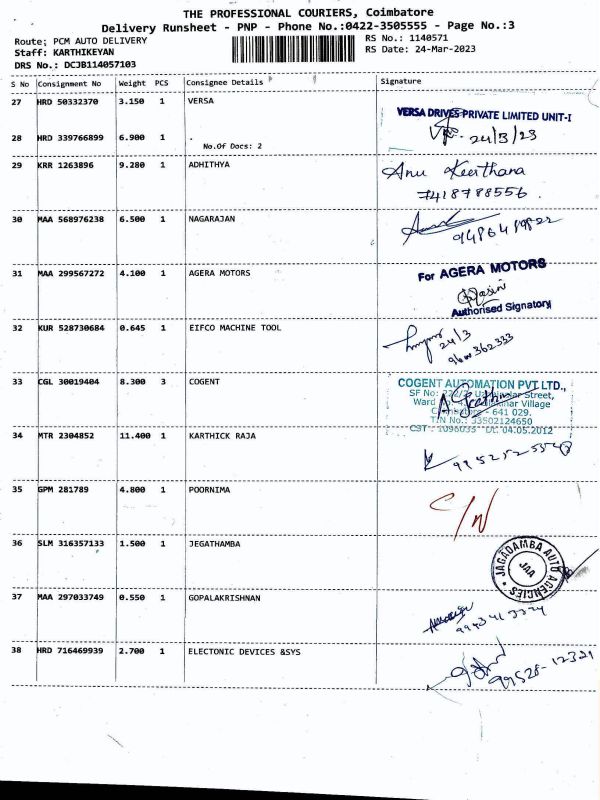 THE PROFESSIONAL COURIERS, Coimbatore
Delivery Runsheet - PNP - Phone No.:0422-3505555 - Page No.:3
Route; PCM AUTO DELIVERY RS No.: 1140571
Staff: KARTHIKEYAN RS Date: 24-Mar-2023
DRS No.: DCJB114057103
S No Consignment No Weight PCS Consignee Details Signature
27 HRD 50332370 3.150 1 VERSA
VERSA DRIVES PRIVATE LIMITED UNIT-I
28 HRD 339766899 6.900 1 . 24/3/23
No.Of Docs: 2
29 KRR 1263896 9.280 1 ADHITHYA Anu Keerthana
7418788556
30 MAA 568976238 6.500 1 NAGARAJAN
31 MAA 299567272 4.100 1 AGERA MOTORS For AGERA MOTORS
Authorised Signatory
32 KUR 528730684 0.645 1 EIFCO MACHINE TOOL 24/3
33 CGL 30019404 8.300 3 COGENT COGENT AUTOMATION PVT LTD.,
SF No: Street,
Ward Village
- 641 029.
TIN No.: 33502124650
CST : 1096035 Dt. 04.05.2012
34 MTR 2304852 11.400 1 KARTHICK RAJA
35 GPM 281789 4.800 1 POORNIMA C/N
36 SLM 316357133 1.500 1 JEGATHAMBA JAGADAMBA AUTO AGENCIES
JAA
37 MAA 297033749 0.550 1 GOPALAKRISHNAN
38 HRD 716469939 2.700 1 ELECTONIC DEVICES &SYS 99528-12321